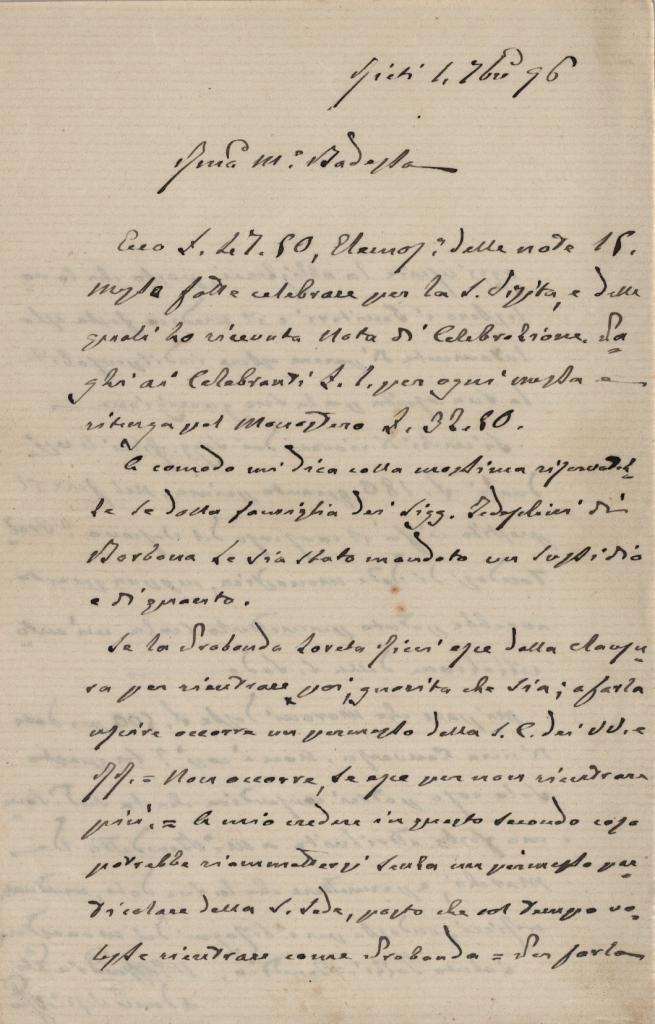 Rieti 1. 7bre 96
Rma M.e Badessa
Ecco L. 47.50, Elemos.e delle note 15.
messe fatte celebrare per la S. Visita, e delle
quali ho ricevuta Nota di Celebrazione. Pa-
ghi ai Celebranti L. 1. per ogni messa e
ritenga pel Monastero L. 32.50.
A comodo mi dica colla massima riservatez-
za se dalla famiglia dei Sigg. di
Borbona Le sia stato mandato un sussidio
e di quanto.
Se la Probanda Loreta esce dalla clausu-
ra per rientrare poi, guarita che sia; a farla
uscire occorre un permesso della S. C. dei VV. e
RR. = Non occorre, se esce per non rientrare
più. = A mio credere in questo secondo caso
potrebbe riammettersi senza un permesso par-
ticolare della S. Sede, posto che col tempo vo-
lesse rientrare come Probanda = Per farla